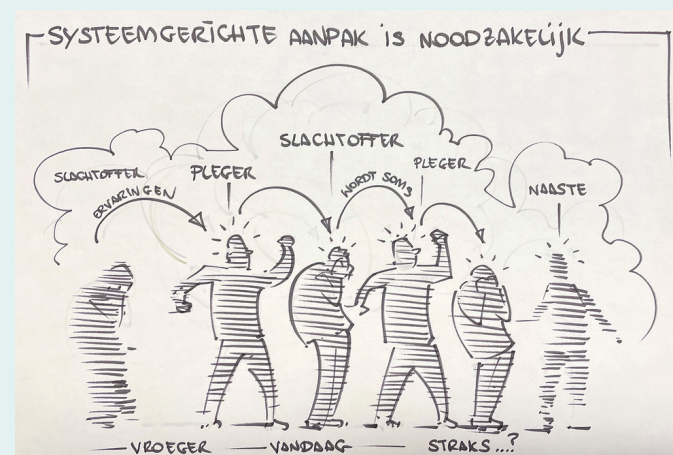 SYSTEEMGERICHTE AANPAK IS NOODZAKELIJK
SLACHTOFFER
ERVARINGEN
PLEGER
SLACHTOFFER
WORDT SOMS
PLEGER
NAASTE
VROEGER VANDAAG STRAKS....?